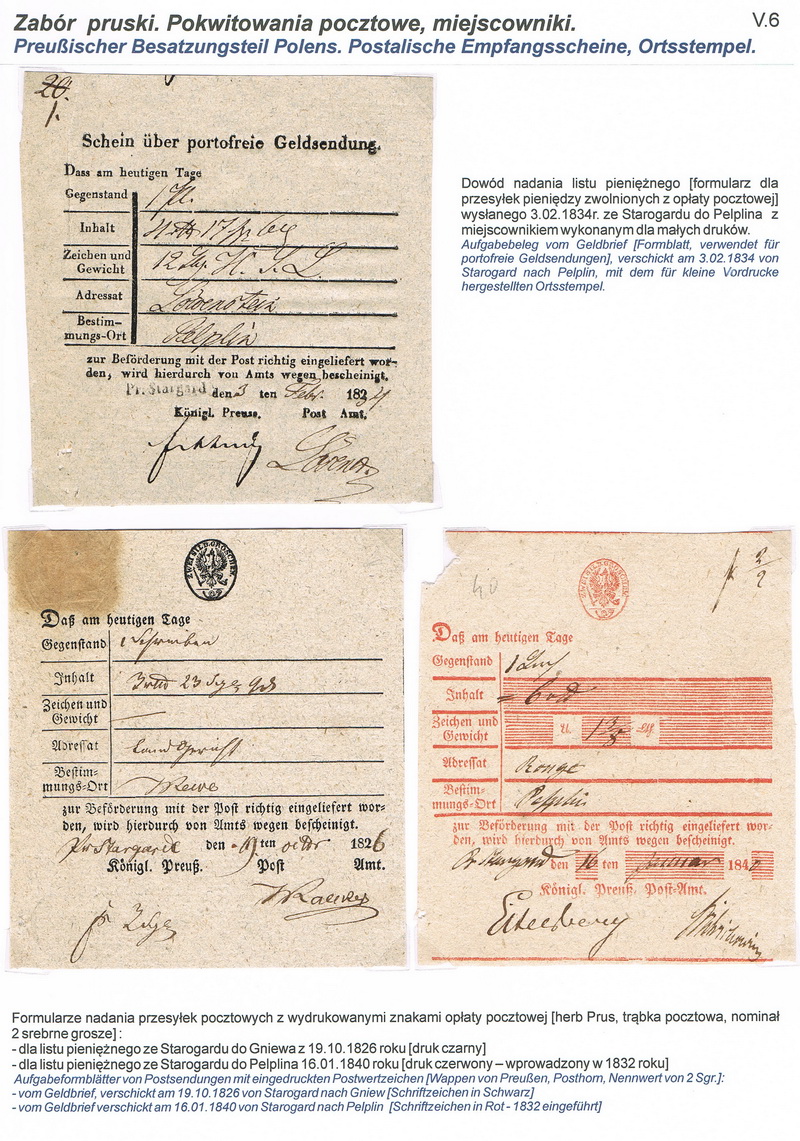 Zabór pruski. Pokwitowania pocztowe, miejscowniki.
V.6
Preußischer Besatzungsteil Polens. Postalische Empfangsscheine, Ortsstempel.
20.
1.
Schein über portofreie Geldsendung.
Dass am heutigen Tage
Gegenstand
Inhalt
Zeichen und
Gewicht
Adressat
Löwenstein
Bestim-
mungs-Ort
Pelplin
zur Beförderung mit der Post richtig eingeliefert wor-
den, wird hierdurch von Amts wegen bescheinigt.
Pr. Stargard den 3 ten Febr. 1834
Königl. Preuss. Post Amt.
Dowód nadania listu pieniężnego [formularz dla
przesyłek pieniędzy zwolnionych z opłaty pocztowej]
wysłanego 3.02.1834r. ze Starogardu do Pelplina z
miejscownikiem wykonanym dla małych druków.
Aufgabebeleg vom Geldbrief [Formblatt, verwendet für
portofreie Geldsendungen], verschickt am 3.02.1834 von
Starogard nach Pelplin, mit dem für kleine Vordrucke
hergestellten Ortsstempel.
ZWEI SILB. GROSCHEN
Daß am heutigen Tage
Gegenstand 1 Schreiben
Inhalt
Zeichen und
Gewicht
Adressat Land Gericht
Bestim-
mungs-Ort Mewe
zur Beförderung mit der Post richtig eingeliefert wor-
den, wird hierdurch von Amts wegen bescheinigt.
Pr Stargardt den 19 ten octbr 1826
Königl. Preuß. Post Amt.
40
ZWEI SILB. GROSCHEN
Daß am heutigen Tage
Gegenstand
Inhalt
Zeichen und
Gewicht
Adressat
Bestim-
mungs-Ort Pelplin
zur Beförderung mit der Post richtig eingeliefert wor-
den, wird hierdurch von Amts wegen bescheinigt.
Pr Stargard den 16 ten Januar 1840
Königl. Preuß. Post-Amt.
Formularze nadania przesyłek pocztowych z wydrukowanymi znakami opłaty pocztowej [herb Prus, trąbka pocztowa, nominał
2 srebrne grosze] :
- dla listu pieniężnego ze Starogardu do Gniewa z 19.10.1826 roku [druk czarny]
- dla listu pieniężnego ze Starogardu do Pelplina 16.01.1840 roku [druk czerwony – wprowadzony w 1832 roku]
Aufgabeformblätter von Postsendungen mit eingedruckten Postwertzeichen [Wappen von Preußen, Posthorn, Nennwert von 2 Sgr.]:
- vom Geldbrief, verschickt am 19.10.1826 von Starogard nach Gniew [Schriftzeichen in Schwarz]
- vom Geldbrief verschickt am 16.01.1840 von Starogard nach Pelplin [Schriftzeichen in Rot - 1832 eingeführt]